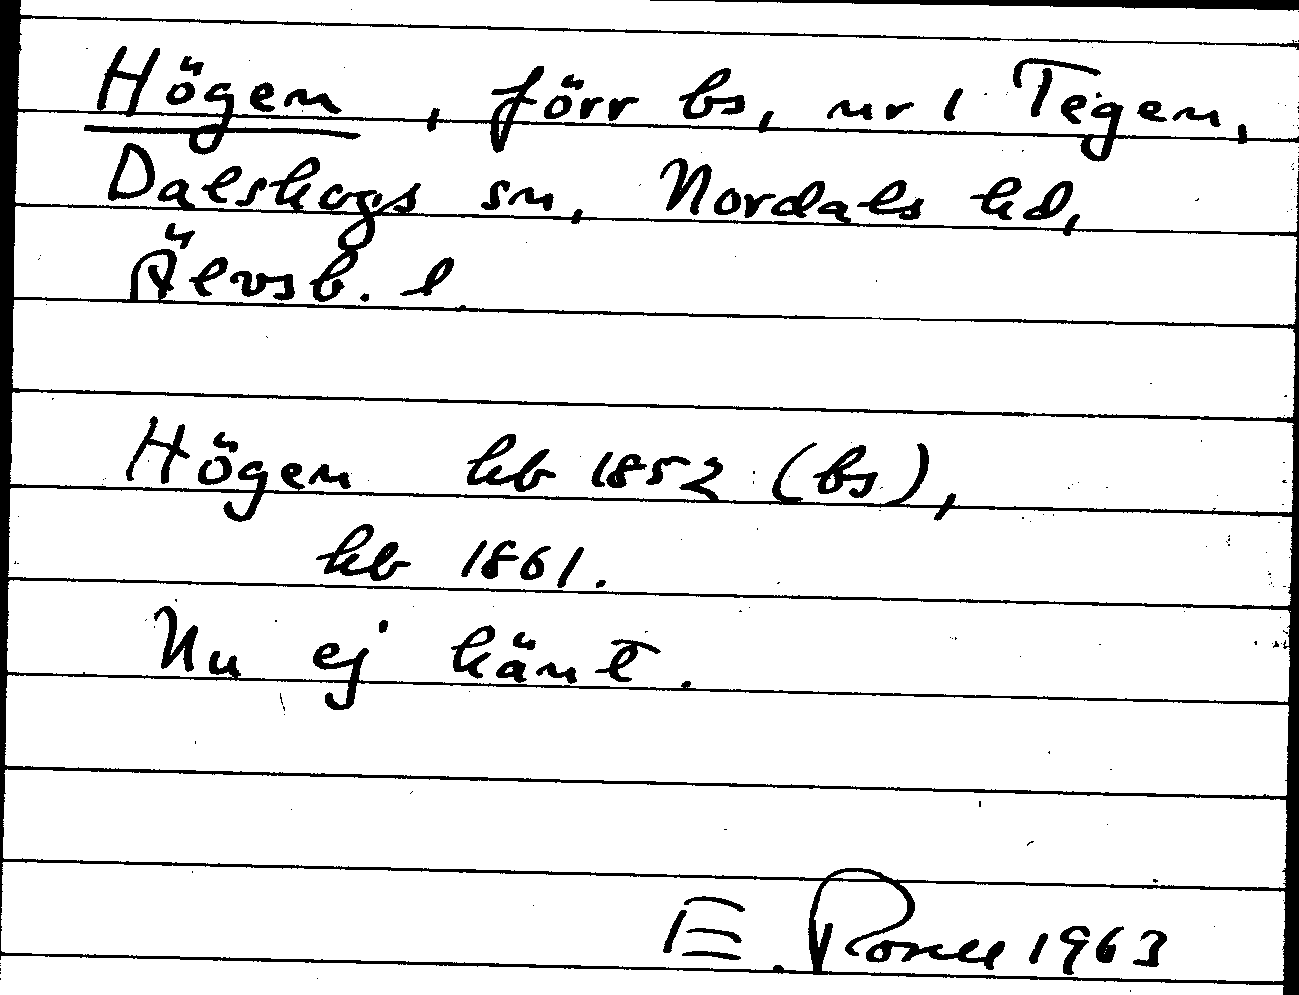 Högen, förr bs, nr 1 Tegen,
Dalskogs sn, Nordals hd,
Älvsb. l.
Högen hb 1852 (bs),
hb 1861.
Nu ej känt.
E. 1963